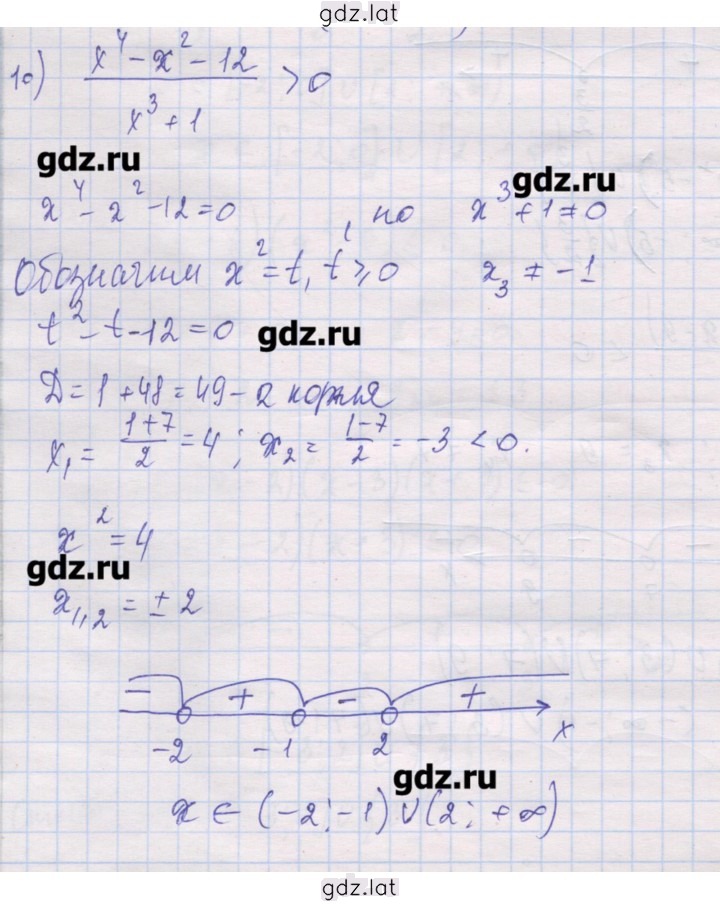 gdz.lat
10) (x⁴ - x² - 12)/(x³ + 1) > 0
gdz.ru
gdz.ru
x⁴ - x² - 12 = 0, но x³ + 1 ≠ 0
Обозначим x² = t, t ⩾ 0 x₃ ≠ -1
t² - t - 12 = 0 gdz.ru
D = 1 + 48 = 49 - 2 корня
x₁ = (1+7)/2 = 4; x₂ = (1-7)/2 = -3 < 0.
x² = 4
gdz.ru
x₁,₂ = ± 2
- + - +
-2 -1 2 x
gdz.ru
x ∈ (-2; -1) ∪ (2; +∞)
gdz.lat